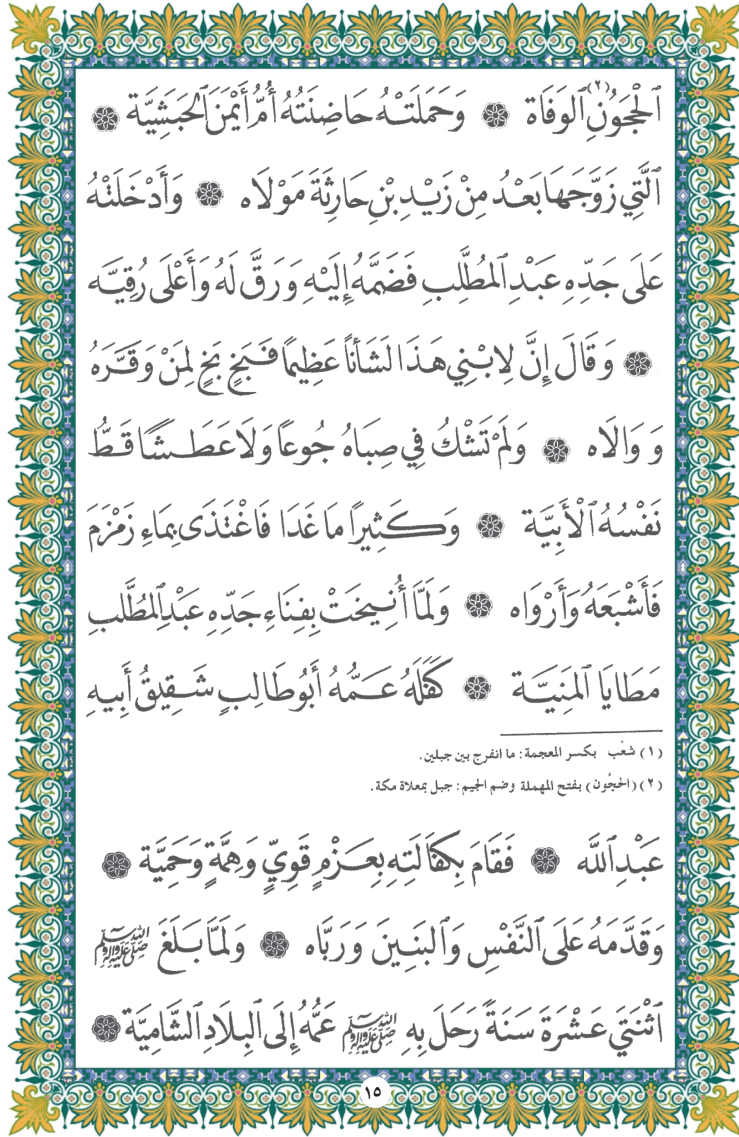 ٱلْحَجُونِ(٢) ٱلْوَفَاة ۞ وَحَمَلَتْهُ حَاضِنَتُهُ أُمُّ أَيْمَنَ ٱلْحَبَشِيَّة ۞
ٱلَّتِي زَوَّجَهَا بَعْدُ مِنْ زَيْدِ بْنِ حَارِثَةَ مَوْلَاه ۞ وَأَدْخَلَتْهُ
عَلَى جَدِّهِ عَبْدِ ٱلْمُطَّلِبِ فَضَمَّهُ إِلَيْهِ وَرَقَّ لَهُ وَأَعْلَى رُقِيَّه
۞ وَقَالَ إِنَّ لِابْنِي هَذَا لَشَأْنًا عَظِيمًا فَبَخٍ بَخٍ لِمَنْ وَقَّرَهُ
وَوَالَاه ۞ وَلَمْ تَشْكُ فِي صِبَاهُ جُوعًا وَلَا عَطَشًا قَطُّ
نَفْسُهُ ٱلْأَبِيَّة ۞ وَكَثِيرًا مَا غَدَا فَاغْتَذَى بِمَاءِ زَمْزَمَ
فَأَشْبَعَهُ وَأَرْوَاه ۞ وَلَمَّا أُنِيخَتْ بِفِنَاءِ جَدِّهِ عَبْدِ ٱلْمُطَّلِبِ
مَطَايَا ٱلْمَنِيَّة ۞ كَفَلَهُ عَمُّهُ أَبُو طَالِبٍ شَقِيقُ أَبِيهِ
(١) شعْب بكسر المعجمة: ما انفرج بين جبلين.
(٢) (الحجُون) بفتح المهملة وضم الجيم: جبل بمعلاة مكة.
عَبْدِ ٱللَّه ۞ فَقَامَ بِكَفَالَتِهِ بِعَزْمٍ قَوِيٍّ وَهِمَّةٍ وَحَمِيَّة ۞
وَقَدَّمَهُ عَلَى ٱلنَّفْسِ وَٱلْبَنِينَ وَرَبَّاه ۞ وَلَمَّا بَلَغَ ﷺ
ٱثْنَتَيْ عَشْرَةَ سَنَةً رَحَلَ بِهِ ﷺ عَمُّهُ إِلَى ٱلْبِلَادِ ٱلشَّامِيَّة ۞
١٥